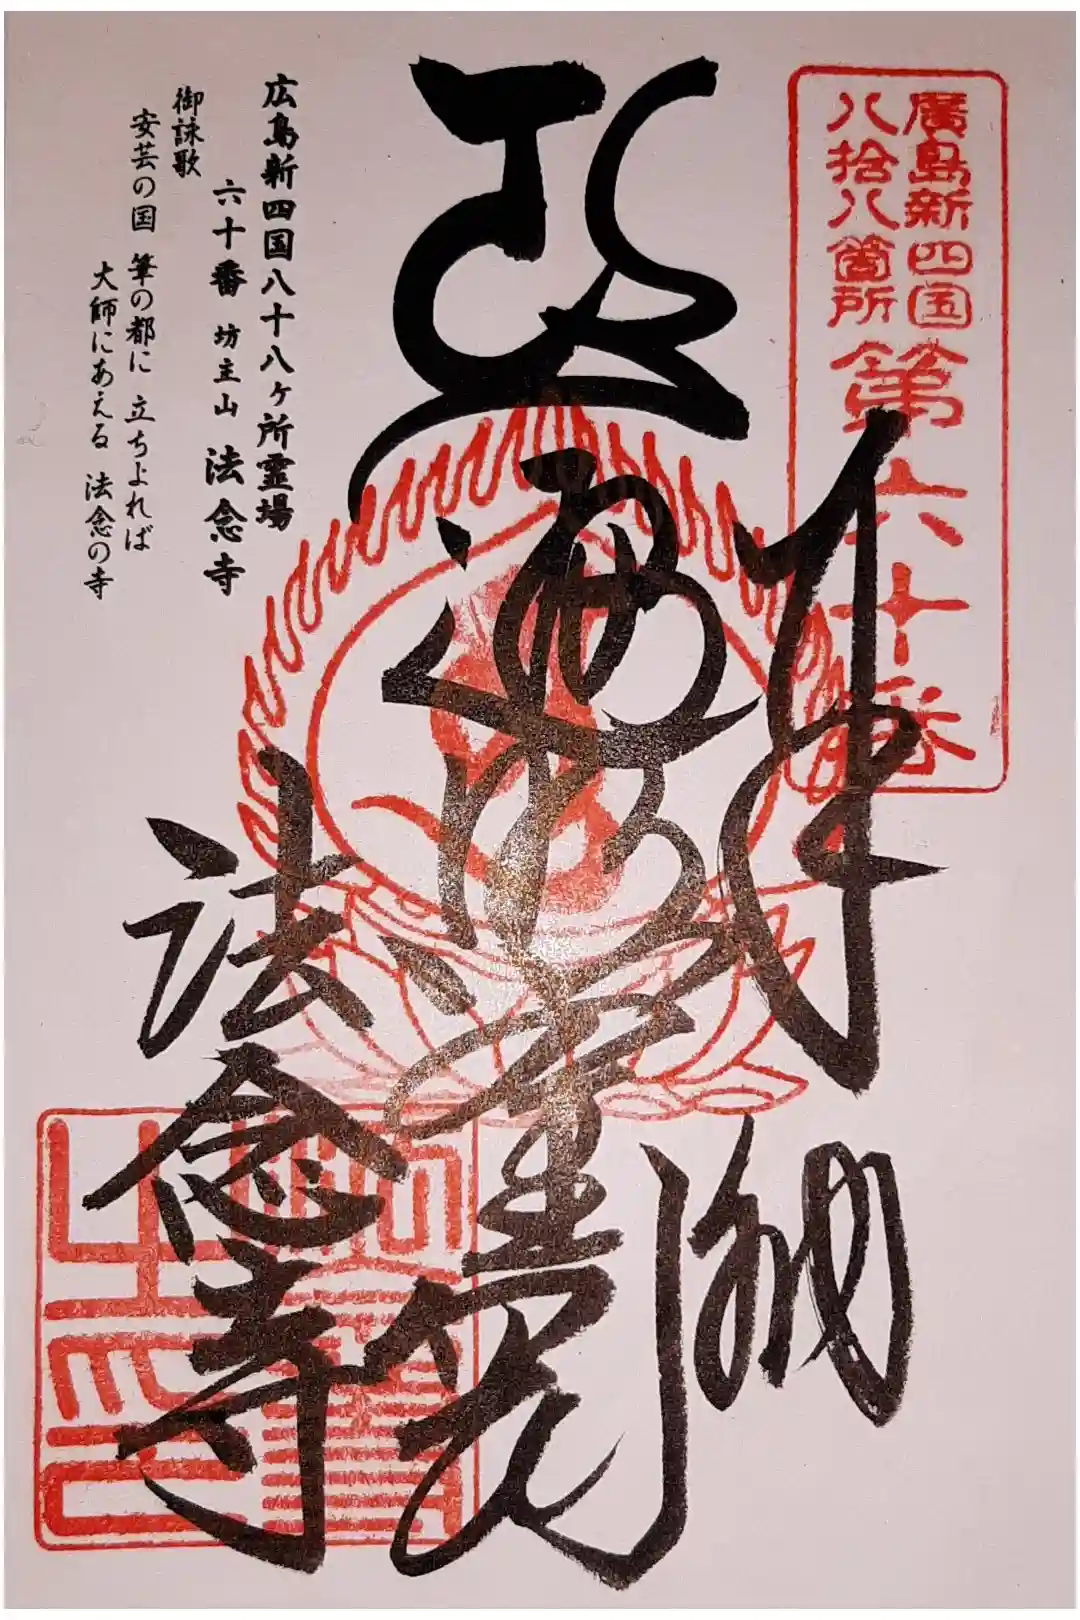 廣島新四国
八拾八箇所
第六十番
奉納
法念寺
広島新四国八十八ヶ所霊場
六十番 坊主山 法念寺
御詠歌
安芸の国 筆の都に 立ちよれば
大師にあえる 法念の寺